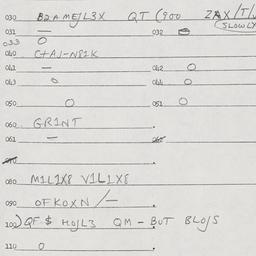 030 B2AME/L3X QT (900 ZAX/T/
(SLOWLY
031 — 032 0
033 0
040 C+AJ-N81K
041 — 042 0
043 0 044 0
050 0 051 0
060 GR1NT
061 —
080 M1L1X8 V1L1X8
090 OFKOXN /-
100) QF $ HO/L3 QM - BUT BLO/S
110 0